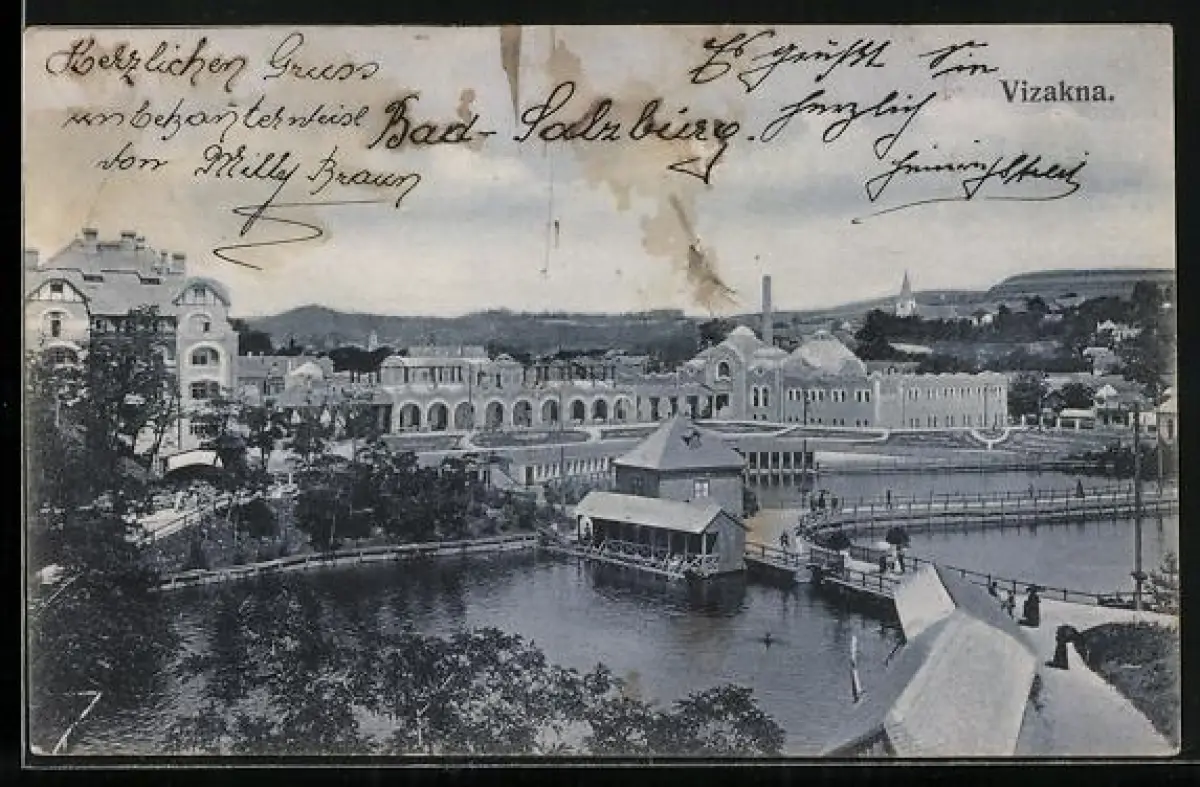 Herzlichen Gruss
unbekanterweise
von Milly Braun
Bad-Salzburg.
Es grüßt Sie
herzlich
Vizakna.